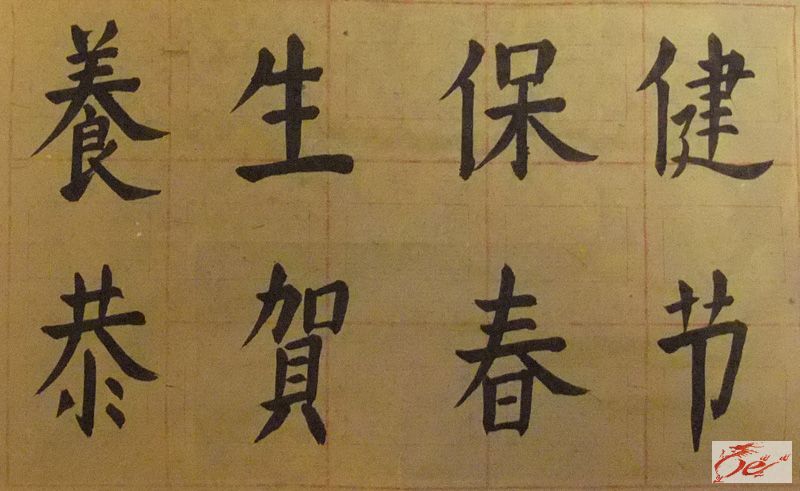 養生保健
恭賀春节